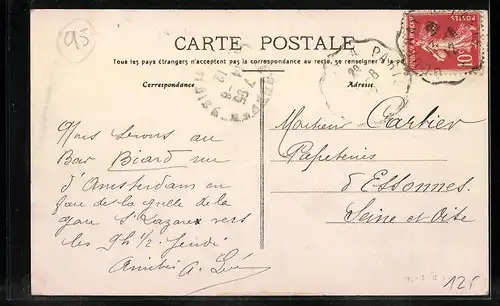 95
CARTE POSTALE
Tous les pays étrangers n'acceptent pas la correspondance au recto, se renseigner à la po
Correspondance
Adresse
POSTES
10
A PARIS
Nous serons au
Bar Biard rue
d'Amsterdam en
face de la grille de la
gare St Lazare vers
les 9h 1/2 Jeudi
Amitiés A.
Monsieur Cartier
Papeteries
d'Essonnes
Seine et Oise